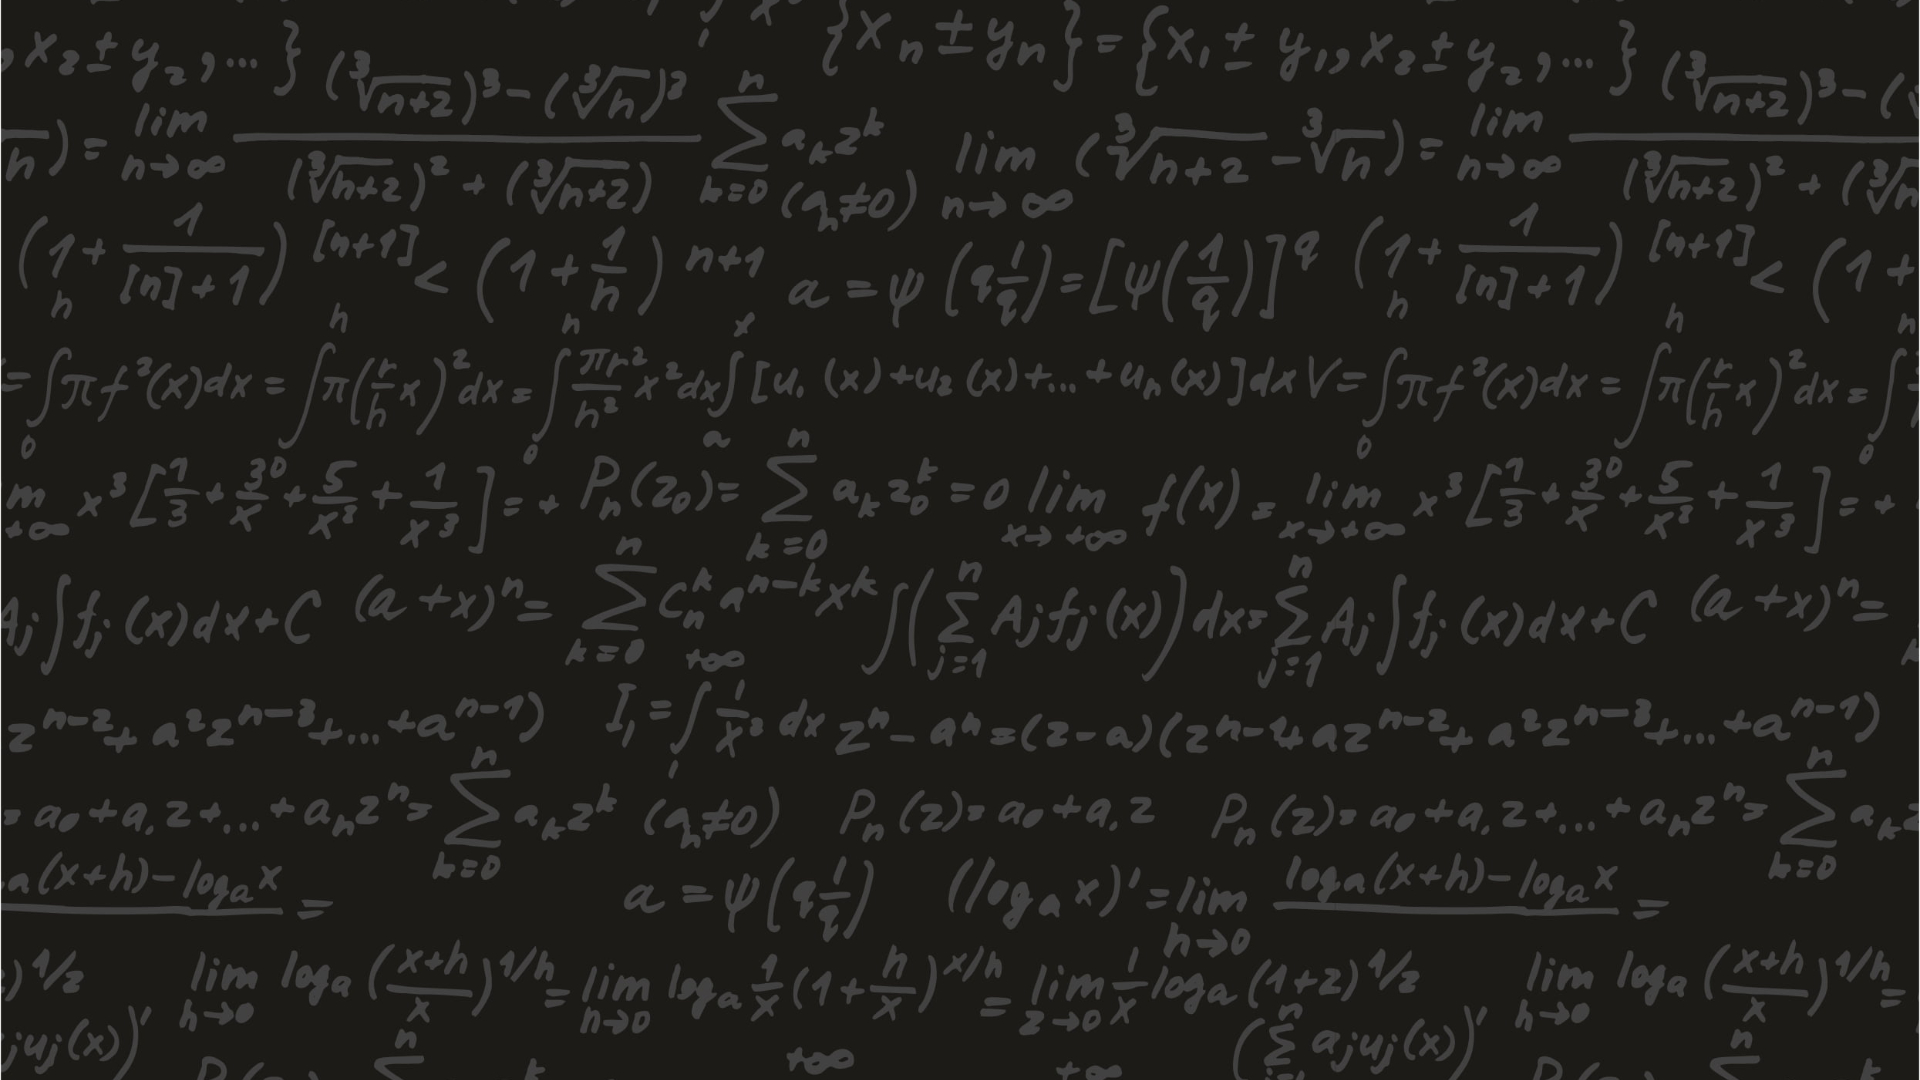 , x₂ ± y₂, ... } {xₙ ± yₙ} = {x₁ ± y₁, x₂ ± y₂, ... }
(∛(n+2))³ − (∛n)³ (∛(n+2))³ − (
n) = lim n→∞ / (∛(n+2))² + (∛(n+2)) n ∑ k=0 aₖzᵏ (aₙ≠0) lim n→∞ (∛(n+2) − ∛n) = lim n→∞ / (∛(n+2))² + (∛n
(1 + 1/([n]+1))^[n+1] < (1 + 1/n)^n+1 a = ψ(q 1/q) = [ψ(1/q)]^q (1 + 1/([n]+1))^[n+1] < (1 +
= ∫₀ʰ πf²(x)dx = ∫ʰ π(r/h x)²dx = ∫₀ʰ πr²/h² x²dx ∫ₐˣ [u₁(x) + u₂(x) + ... + uₙ(x)]dx V = ∫₀ʰ πf²(x)dx = ∫ʰ π(r/h x)²dx = ∫₀ʰ
m +∞ x³[1/3 + 3⁰/x + 5/x² + 1/x³] = + Pₙ(z₀) = n ∑ k=0 aₖz₀ᵏ = 0 lim x→+∞ f(x) = lim x→+∞ x³[1/3 + 3⁰/x + 5/x² + 1/x³] = +
Aⱼ∫fⱼ(x)dx + C (a + x)ⁿ = n ∑ k=0 Cₙᵏ aⁿ⁻ᵏxᵏ ∫(n ∑ j=1 Aⱼfⱼ(x))dx = n ∑ j=1 Aⱼ∫fⱼ(x)dx + C (a + x)ⁿ =
zⁿ⁻² + a²zⁿ⁻³ + ... + aⁿ⁻¹) I₁ = ∫₁^+∞ 1/x³ dx zⁿ − aⁿ = (z − a)(zⁿ⁻¹ + azⁿ⁻² + a²zⁿ⁻³ + ... + aⁿ⁻¹)
= a₀ + a₁z + ... + aₙzⁿ = n ∑ k=0 aₖzᵏ (aₙ≠0) Pₙ(z) = a₀ + a₁z Pₙ(z) = a₀ + a₁z + ... + aₙzⁿ = n ∑ k=0 aₖz
a(x+h) − logₐx = a = ψ(q 1/q) (logₐx)' = lim h→0 logₐ(x+h) − logₐx =
)^1/z lim h→0 logₐ((x+h)/x)^1/h = lim n→0 logₐ 1/x (1 + h/x)^x/h = lim z→0 1/x logₐ(1+z)^1/z lim h→0 logₐ((x+h)/x)^1/h =
ⱼuⱼ(x))' n ∑ +∞ +∞ (n ∑ aⱼuⱼ(x))' n ∑